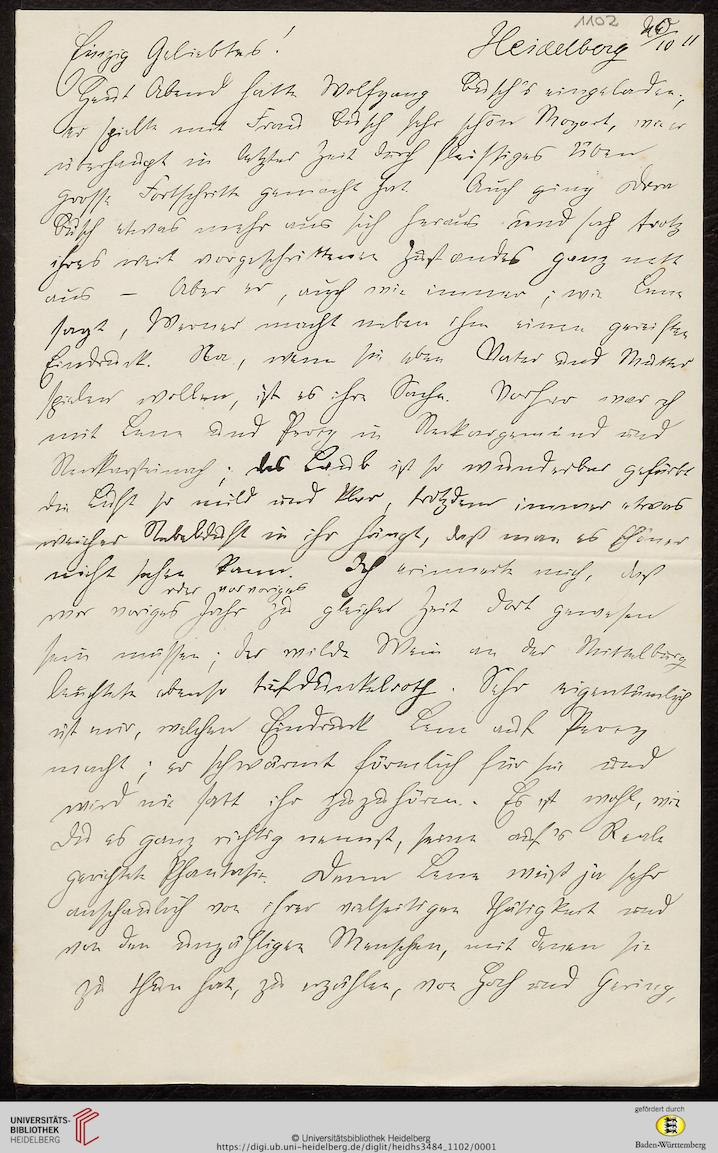 1102
Einzig Geliebtes! Heidelberg 20/10 11
Heut Abend hatte Wolfgang Busch's eingeladen;
er spielte mit Frau Busch sehr schön Mozart, wie er
überhaupt in letzter Zeit durch fleissiges Üben
grosse Fortschritte gemacht hat. Auch ging Dora
Busch etwas mehr aus sich heraus und sah trotz
ihres weit vorgeschrittenen Zustandes ganz nett
aus – Aber er, auch wie immer; wie Lene
sagt, Werner macht neben ihm einen gereiften
Eindruck. Na, wenn sie eben Vater und Mutter
spielen wollen, ist es ihre Sache. Vorher war ich
mit Lene und Percy in Neckargemünd und
Neckarsteinach; das Laub ist so wunderbar gefärbt
die Luft so mild und klar, trotzdem immer etwas
weicher Nebelduft in ihr hängt, daß man es schöner
nicht sehen kann. Ich erinnerte mich, daß
oder vorvoriges
wir voriges Jahr zu gleicher Zeit dort gewesen
sein müssen; der wilde Wein an der Mittelburg
leuchtete ebenso tiefdunkelroth. Sehr eigentümlich
ist mir, welchen Eindruck Lene auf Percy
macht; er schwärmt förmlich für sie und
wird nie satt ihr zuzuhören. Es ist wohl, wie
Du es ganz richtig nennst, seine auf's Reale
gerichtete Phantasie. Denn Lene weiß ja sehr
anschaulich von ihrer vielseitigen Thätigkeit und
von den unzähligen Menschen, mit denen sie
zu thun hat, zu erzählen, von Hoch und Gering,
UNIVERSITÄTS-
BIBLIOTHEK
HEIDELBERG
© Universitätsbibliothek Heidelberg
https://digi.ub.uni-heidelberg.de/diglit/heidhs3484_1102/0001
gefördert durch
Baden-Württemberg